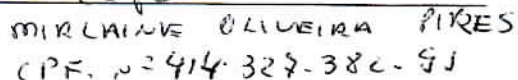 MIRLAINE OLIVEIRA PIRES
CPF. Nº 414.327.382-